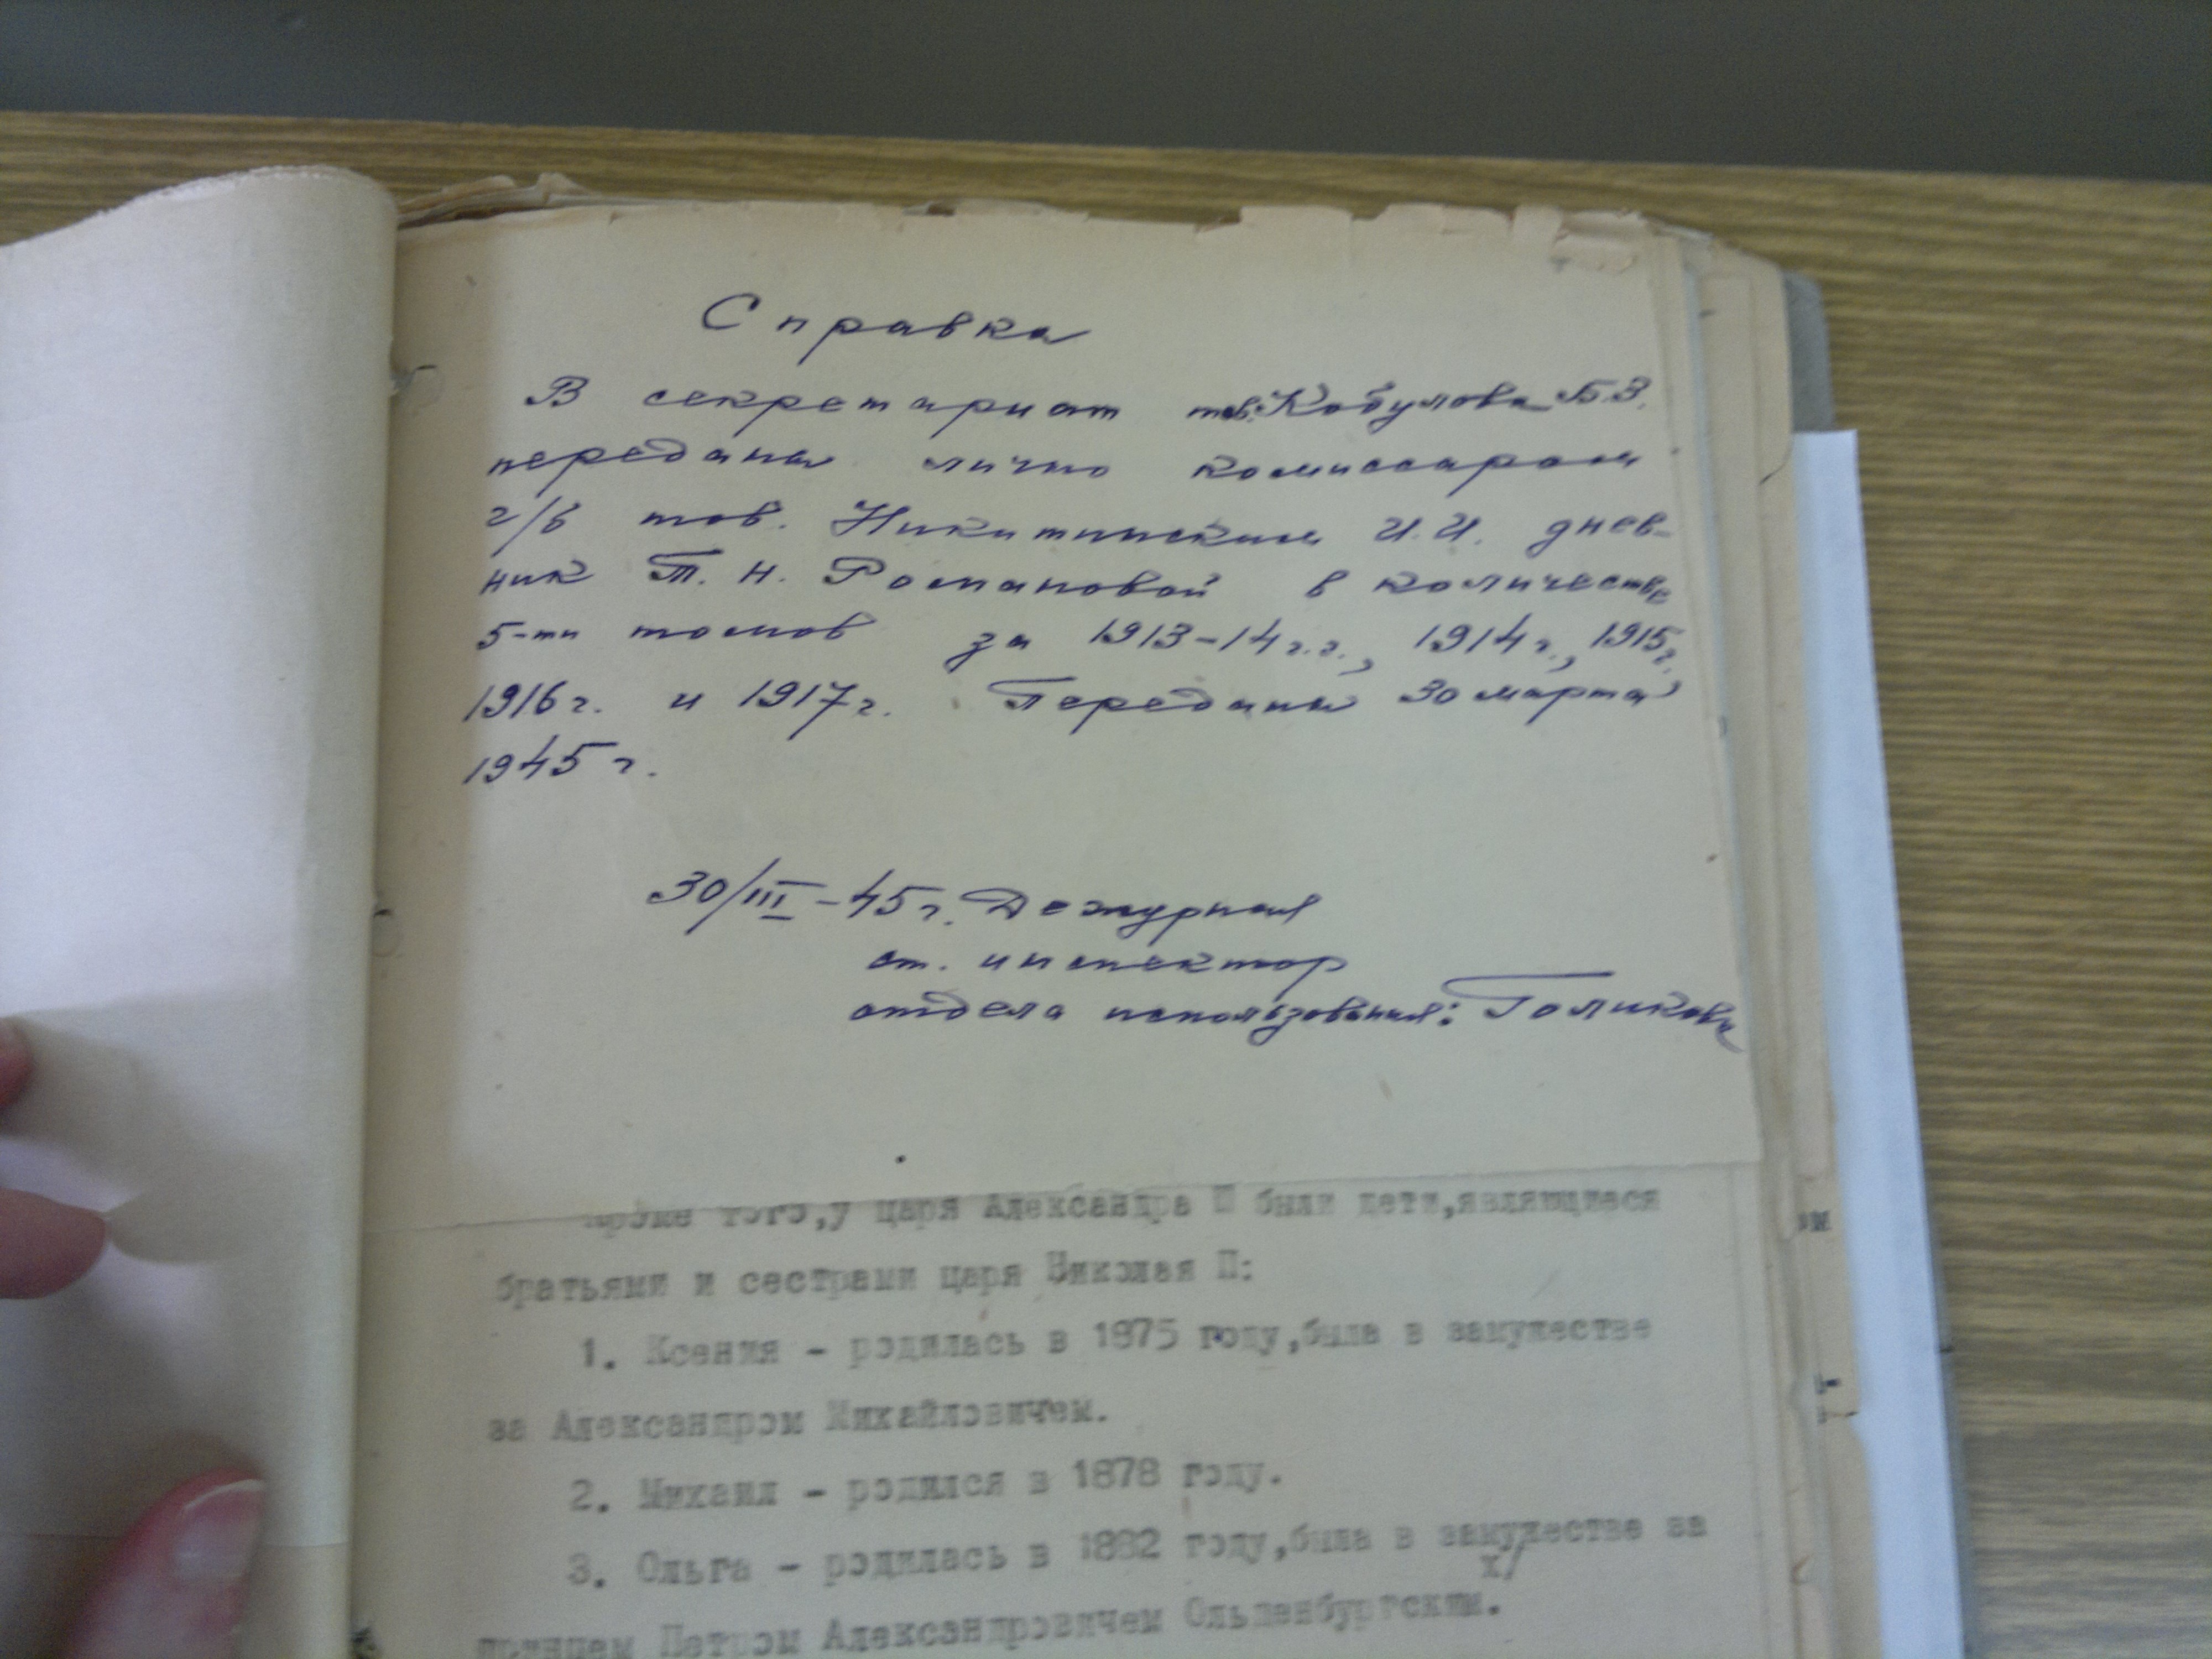 Справка
В секретариат тов. Кобулова Б.З.
переданы лично комиссаром
г/б тов. Никитинским И.И. днев-
ник Т. Н. Романовой в количестве
5-ти томов за 1913-14 г.г., 1914 г., 1915 г.,
1916 г. и 1917 г. Переданы 30 марта
1945 г.
30/III-45 г. Дежурная
ст. инспектор
отдела использования: Голикова
Кроме того,у царя Александра Ш были дети,являющиеся
братьями и сестрами царя Николая П:
1. Ксения - родилась в 1875 году,была в замужестве
за Александром Михайловичем.
2. Михаил - родился в 1878 году.
3. Ольга - родилась в 1882 году,была в замужестве за
х/
принцем Петром Александровичем Ольденбургским.